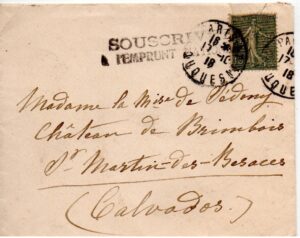 SOUSCRIVEZ
A L'EMPRUNT
PARIS
18
17-10
18
DUQUESNE
PA
18
17-
18
DUQUE
Madame la Mise de Pédeny
Château de Brimbois
St Martin-des-Besaces
(Calvados)